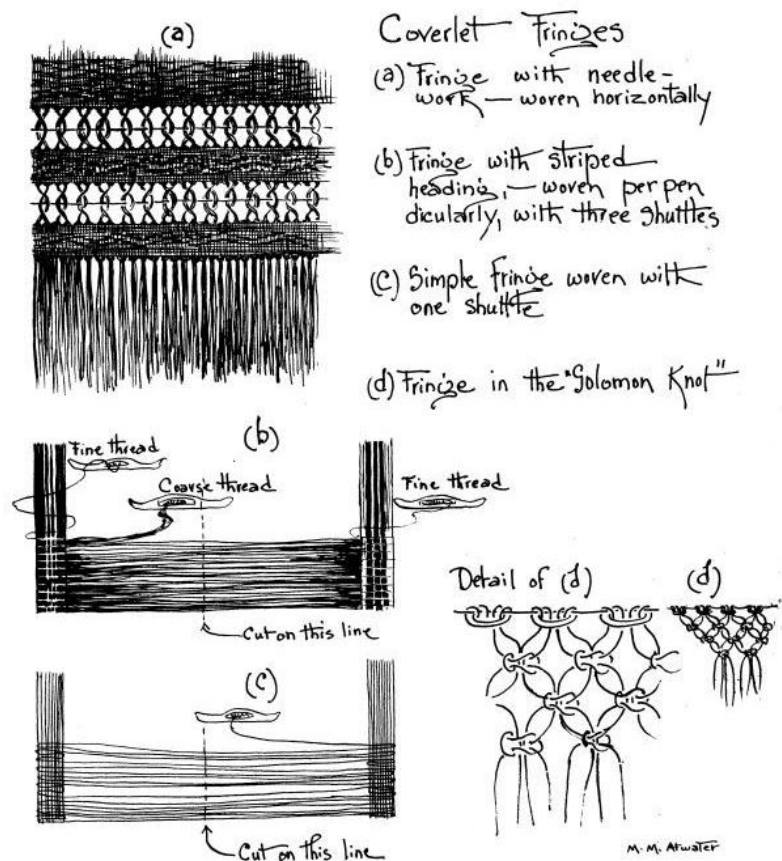 (a)
Coverlet Fringes
(a) Fringe with needle-
work — woven horizontally
(b) Fringe with striped
heading, — woven perpen
dicularly, with three shuttles
(c) Simple fringe woven with
one shuttle
(d) Fringe in the "Solomon Knot"
(b)
Fine thread
Coarse thread
Fine thread
Cut on this line
(c)
Cut on this line
Detail of (d)
(d)
M. M. Atwater